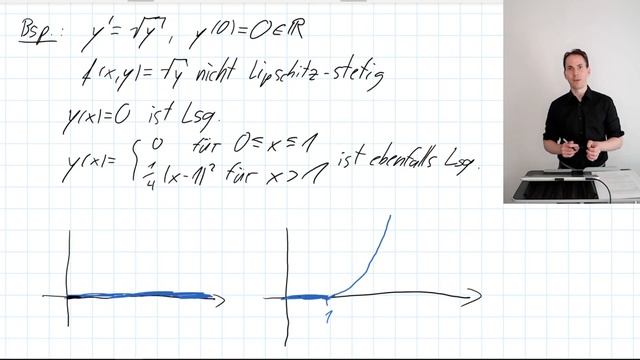 Bsp.: y' = √y, y(0)=0∈ℝ
f(x,y)=√y nicht Lipschitz-stetig
y(x)=0 ist Lsg.
y(x)= { 0 für 0≤x≤1
1/4 (x-1)² für x>1 ist ebenfalls Lsg.
1